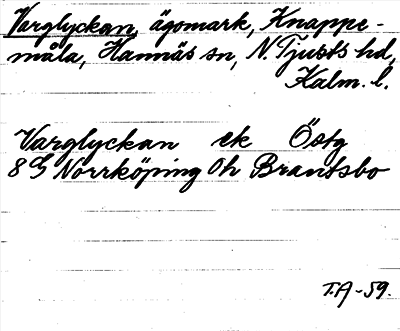 Varglyckan, ägomark, Knappe-
måla, Hannäs sn, N. Tjusts hd,
Kalm. l.
Varglyckan ek Östg
8G Norrköping 0h Brantsbo
T.A-59.